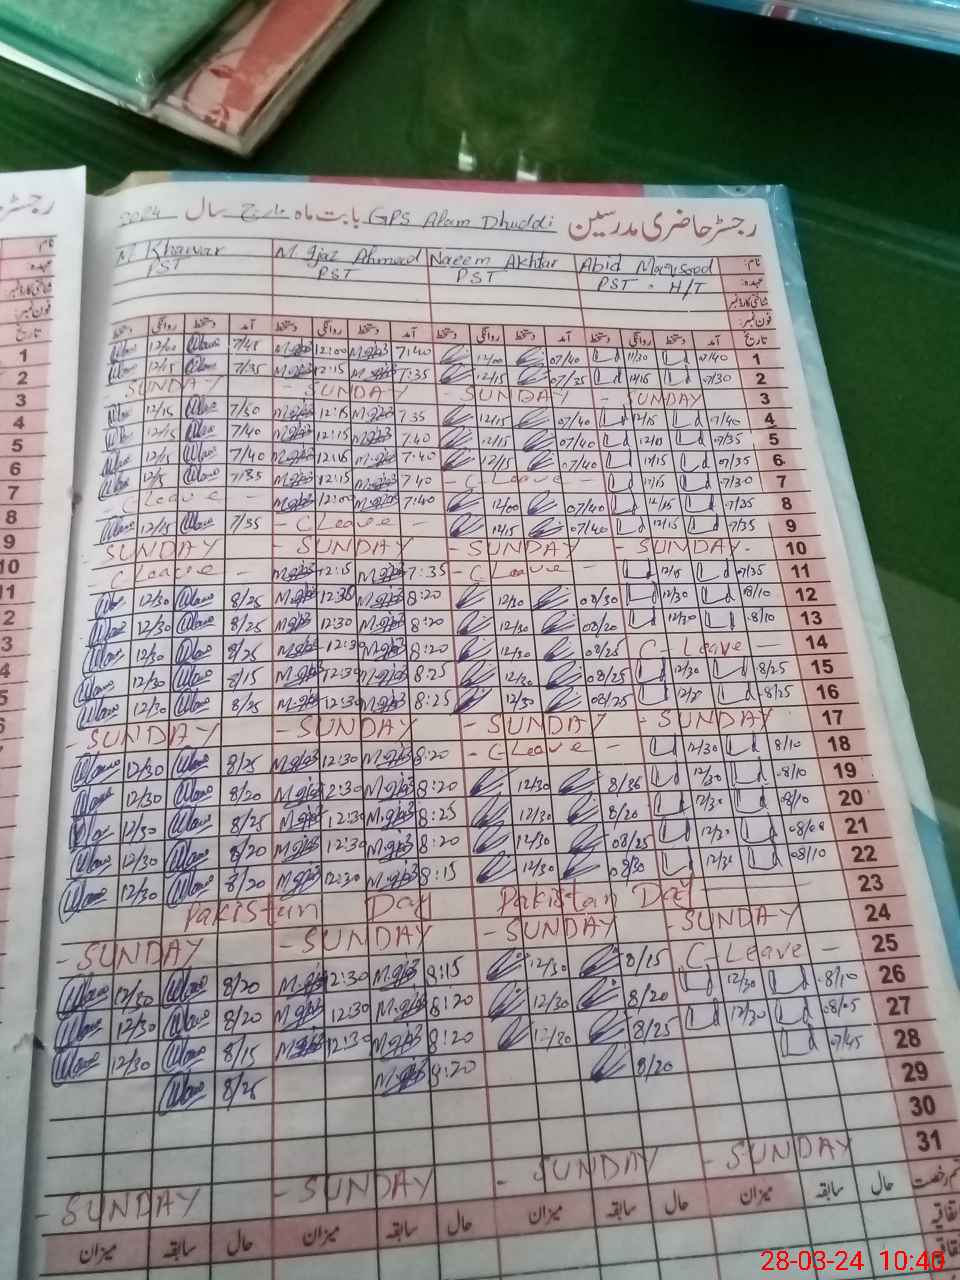 رجسٹر حاضری مدرسین GPS Alam Dhuddi بابت ماہ مارچ سال 2024
نام: Abid Maqsood Naeem Akhtar M Ijaz Ahmad M Khawar
عہدہ: PST - H/T PST PST PST
شناختی کارڈ نمبر
فون نمبر:
تاریخ آمد دستخط روانگی دستخط آمد دستخط روانگی دستخط آمد دستخط روانگی دستخط آمد دستخط روانگی دستخط
1 07/40 11/30 07/40 12/00 7:40 12:00 7/45 12/00
2 07/30 12/15 07/35 12/15 7:35 12:15 7/35 12/15
3 - SUNDAY - SUNDAY - SUNDAY - SUNDAY
4 07/40 12/15 07/40 12/15 7:35 12:15 7/50 12/15
5 07/35 12/15 07/40 12/15 7:40 12:15 7/40 12/15
6 07/35 12/15 07/40 12/15 7:40 12:15 7/40 12/15
7 07/30 12/15 - C Leave - 7:40 12:15 7/35 12/15
8 07/25 12/15 07/40 12/00 7:40 12:00 - C Leave -
9 07/35 12/15 07/40 12/15 - C Leave - 7/35 12/15
10 - SUNDAY - SUNDAY - SUNDAY - SUNDAY
11 07/35 12/15 - C Leave - 7:35 12:15 - C Leave -
12 08/10 12/30 08/30 12/30 8:20 12:30 8/25 12/30
13 08/10 12/30 08/20 12/30 8:20 12:30 8/25 12/30
14 C-Leave - 08/25 12/30 8:20 12:30 8/25 12/30
15 08/25 12/30 08/25 12/30 8:25 12:30 8/15 12/30
16 08/25 12/30 08/25 12/30 8:25 12:30 8/25 12/30
17 - SUNDAY - SUNDAY - SUNDAY - SUNDAY
18 8/10 12/30 - C Leave - 8:20 12:30 8/25 12/30
19 08/10 12/30 8/36 12/30 8:20 12:30 8/20 12/30
20 08/10 12/30 8/20 12/30 8:25 12:30 8/25 12/30
21 12/30 08/25 12/30 8:20 12:30 8/20 12/30
22 08/10 12/30 08/30 12/30 8:15 12:30 8/20 12/30
23 Pakistan Day Pakistan Day
24 - SUNDAY - SUNDAY - SUNDAY - SUNDAY
25 C-Leave - 8/15 12/30 8:15 12:30 8/20 12/30
26 08/10 12/30 8/20 12/30 8:20 12:30 8/20 12/30
27 08/05 12/30 8/25 12/30 8:20 12:30 8/15 12/30
28 07/45 8/20 8:20 8/25
29
30
31 - SUNDAY - SUNDAY - SUNDAY - SUNDAY
حال سابقہ میزان حال سابقہ میزان حال سابقہ میزان حال سابقہ میزان
اتفاقیہ
28-03-24 10:40